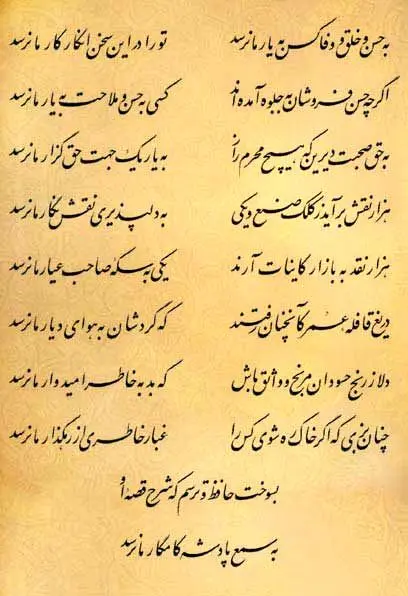 به حسن و خلق و وفا کس به یار ما نرسد تو را در این سخن انکار کار ما نرسد
اگر چه حسن فروشان به جلوه آمده‌اند کسی به حسن و ملاحت به یار ما نرسد
به حق صحبت دیرین که هیچ محرم راز به یار یک جهت حق گزار ما نرسد
هزار نقش برآید ز کلک صنع و یکی به دلپذیری نقش نگار ما نرسد
هزار نقد به بازار کاینات آرند یکی به سکهٔ صاحب عیار ما نرسد
دریغ قافله عمر کآنچنان رفتند که گردشان به هوای دیار ما نرسد
دلا ز رنج حسودان مرنج و واثق باش که بد به خاطر امیدوار ما نرسد
چنان بزی که اگر خاک ره شوی کس را غبار خاطری از رهگذار ما نرسد
بسوخت حافظ و ترسم که شرح قصه او
به سمع پادشه کامگار ما نرسد